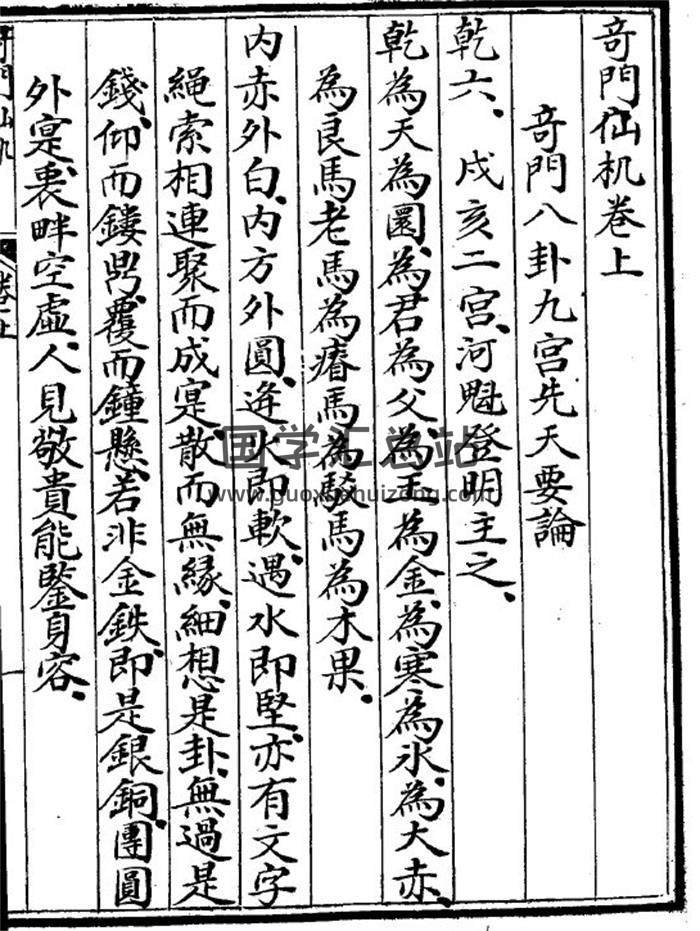 奇門仙机卷上
奇門八卦九宮先天要論
乾六、戌亥二宮、河魁登明主之、
乾為天為圜、為君為父、為玉為金、為寒為冰、為大赤、
為良馬老馬為瘠馬為駁馬為木果、
内赤外白、内方外圓、逢火即軟、遇水即堅、亦有文字
繩索相連聚而成寔、散而無緣、細想是卦、無過是
錢、仰而鏤𣇄覆而鐘懸、若非金鉄、即是銀銅、團圓
外寔、裏畔空虛、人見敬貴能鑒身容、
国学汇总站
www.guoxuehuizong.com